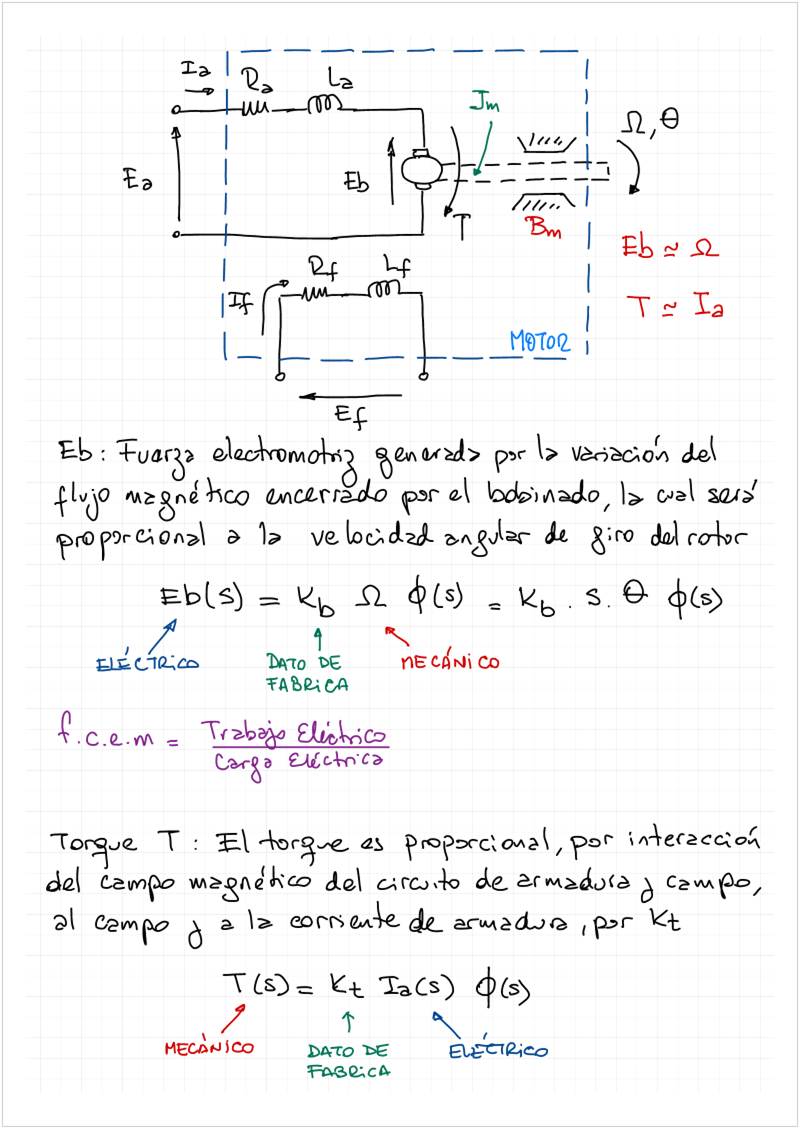 Ia
Ra
La
Jm
Ω, θ
Ea
Eb
T
Bm
Eb ≃ Ω
Rf
Lf
If
T ≃ Ia
MOTOR
Ef
Eb: Fuerza electromotriz generada por la variación del
flujo magnético encerrado por el bobinado, la cual será
proporcional a la velocidad angular de giro del rotor
Eb(s) = Kb Ω ϕ(s) = Kb . s. θ ϕ(s)
ELÉCTRICO
DATO DE
FABRICA
MECÁNICO
f.c.e.m = Trabajo Eléctrico
Carga Eléctrica
Torque T: El torque es proporcional, por interacción
del campo magnético del circuito de armadura y campo,
al campo y a la corriente de armadura, por Kt
T(s) = Kt Ia(s) ϕ(s)
MECÁNICO
DATO DE
FABRICA
ELÉCTRICO